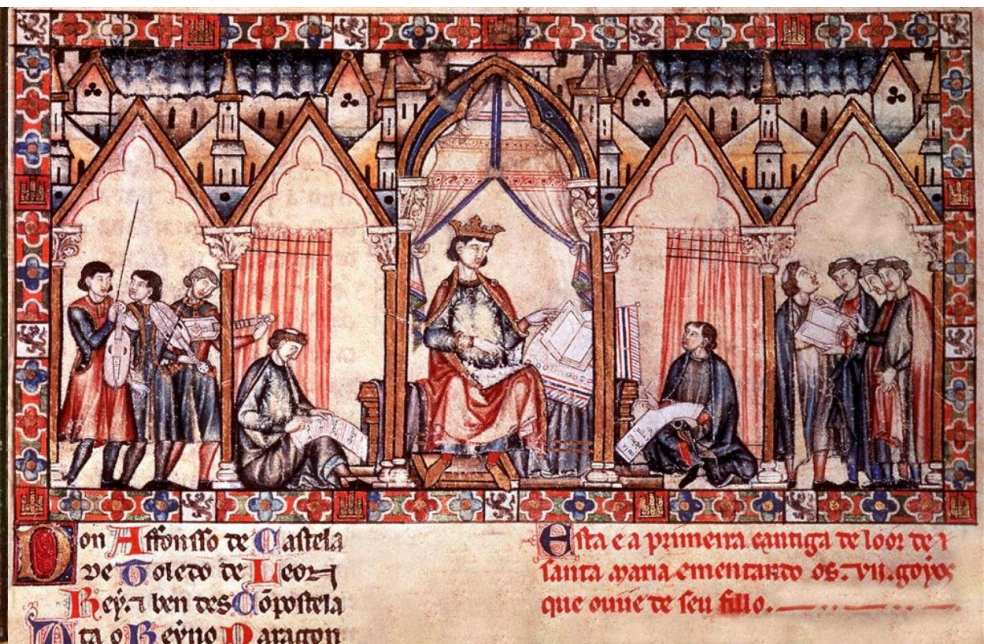 Don Affonsso de Castela
de Toledo de Leon
Rey. ⁊ ben des Cõpostela
Ata o Reyno Daragon
Esta e a primeira cantiga de loor de
santa maria ementando os. vii. goyos
que ouue de seu fillo.